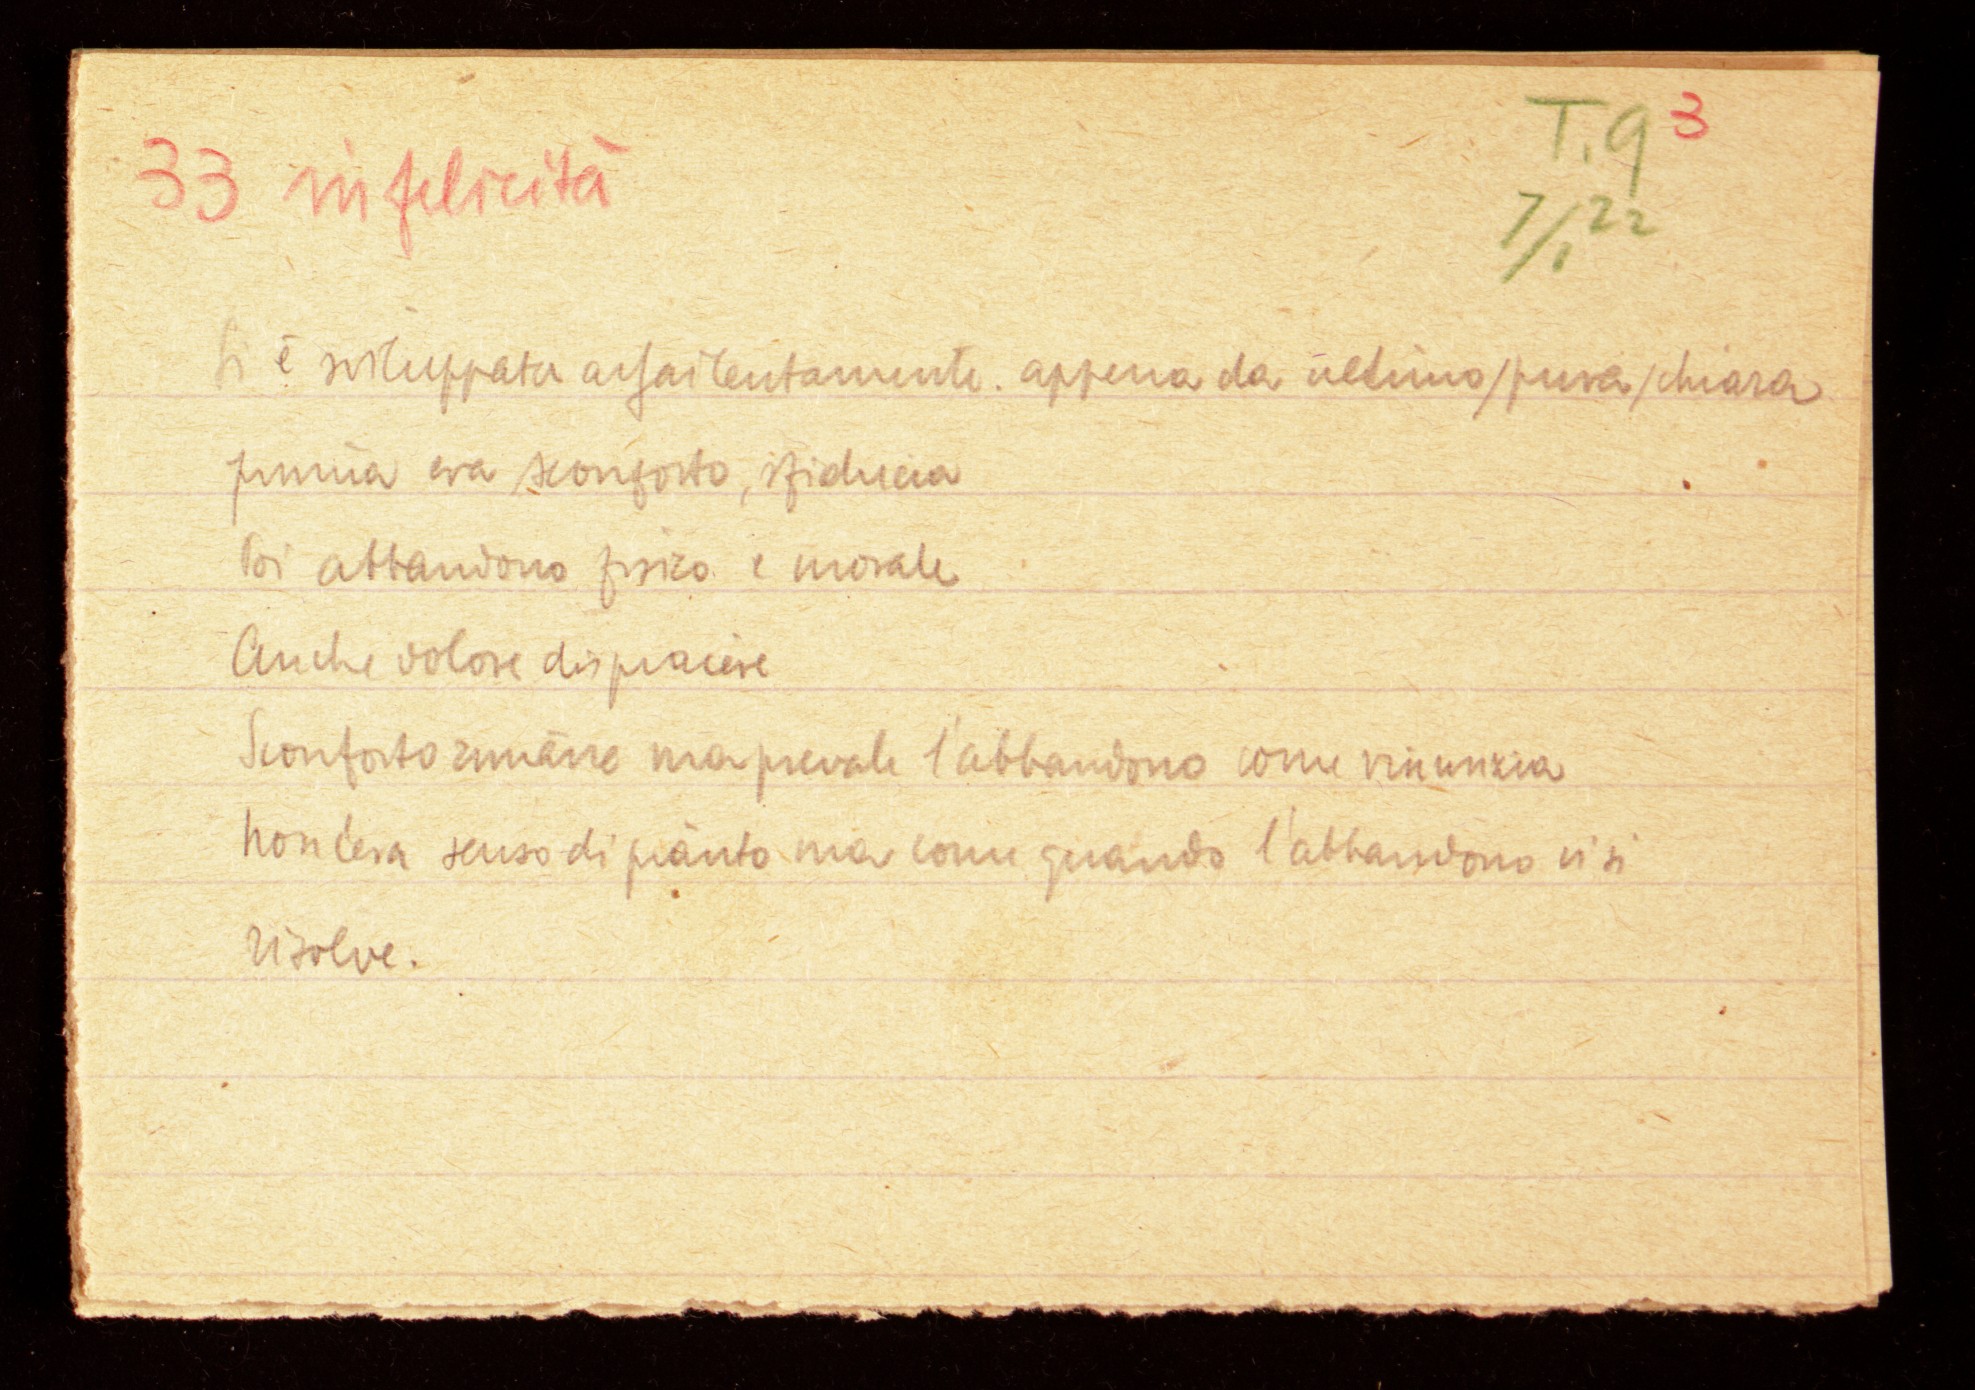 T. 9 3
33 infelicità
7/1 22
Si è sviluppata assai lentamente. appena da ultimo/pura/chiara
prima era sconforto, sfiducia
Poi abbandono fisico e morale
Anche dolore dispiacere
Sconforto rimane ma prevale l'abbandono come rinunzia
non c'era senso di pianto ma come quando l'abbandono vi si
risolve.